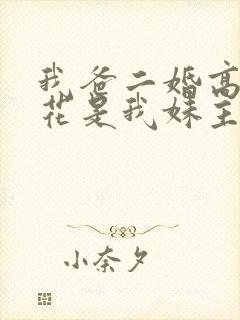 我爸二婚高
花是我妹主
小奈夕